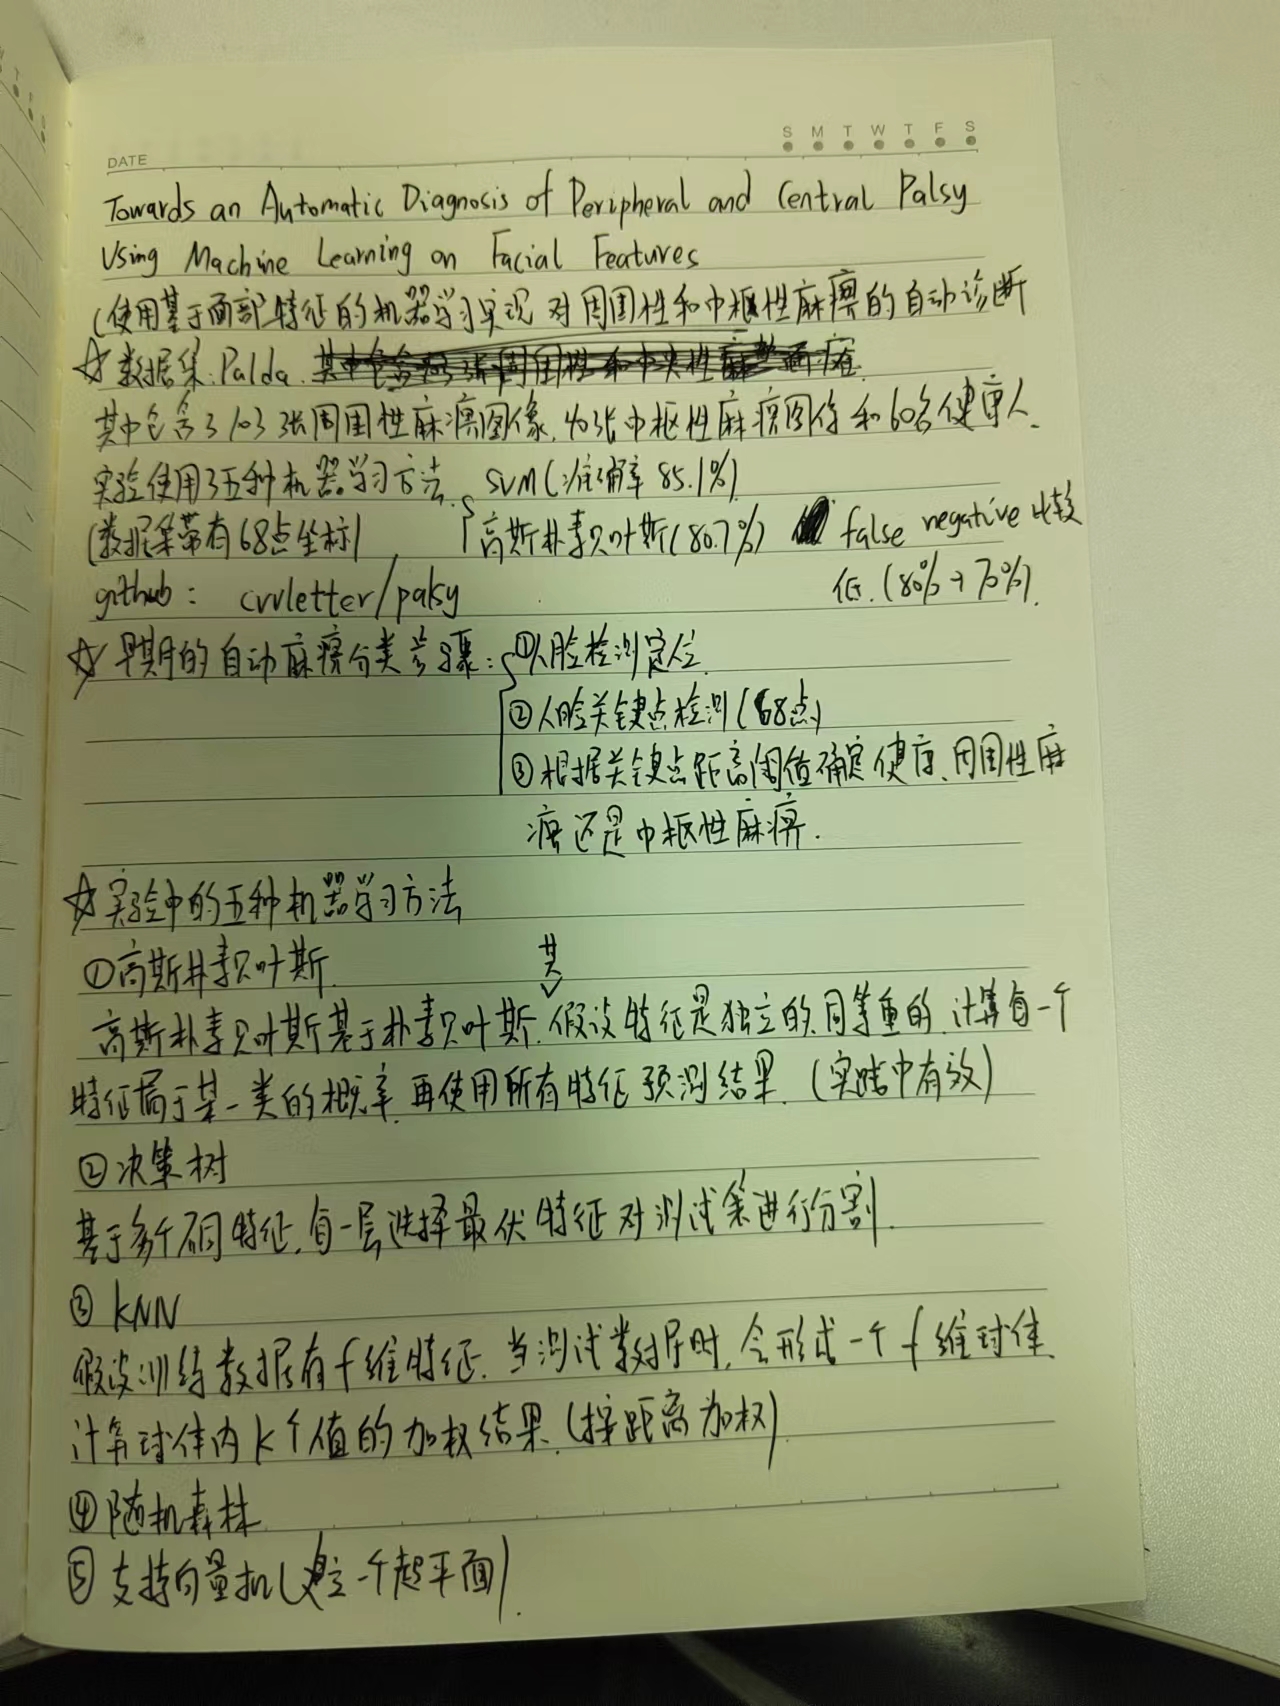 DATE
S M T W T F S
Towards an Automatic Diagnosis of Peripheral and Central Palsy
Using Machine Learning on Facial Features
(使用基于面部特征的机器学习实现对周围性和中枢性麻痹的自动诊断
☆数据集.Palda.
其中包含了103张周围性麻痹图像,40张中枢性麻痹图像和60名健康人.
实验使用了五种机器学习方法. SVM(准确率85.1%)
(数据集带有68点坐标) 高斯朴素贝叶斯(80.7%) false negative比较
github: cvvletter/palsy 低.(80%→70%).
☆早期的自动麻痹分类步骤:①人脸检测定位
②人脸关键点检测(68点)
③根据关键点距离阈值确定健康、周围性麻
痹还是中枢性麻痹.
☆实验中的五种机器学习方法
①高斯朴素贝叶斯
其
高斯朴素贝叶斯基于朴素贝叶斯.假设特征是独立的,同等重的.计算每一个
特征属于某一类的概率,再使用所有特征预测结果.(实践中有效)
②决策树
基于多个不同特征,每一层选择最优特征对测试集进行分割.
③KNN
假设训练数据有f维特征.当测试数据时,会形成一个f维球体.
计算球体内k个值的加权结果.(按距离加权)
④随机森林
⑤支持向量机(建立一个超平面).